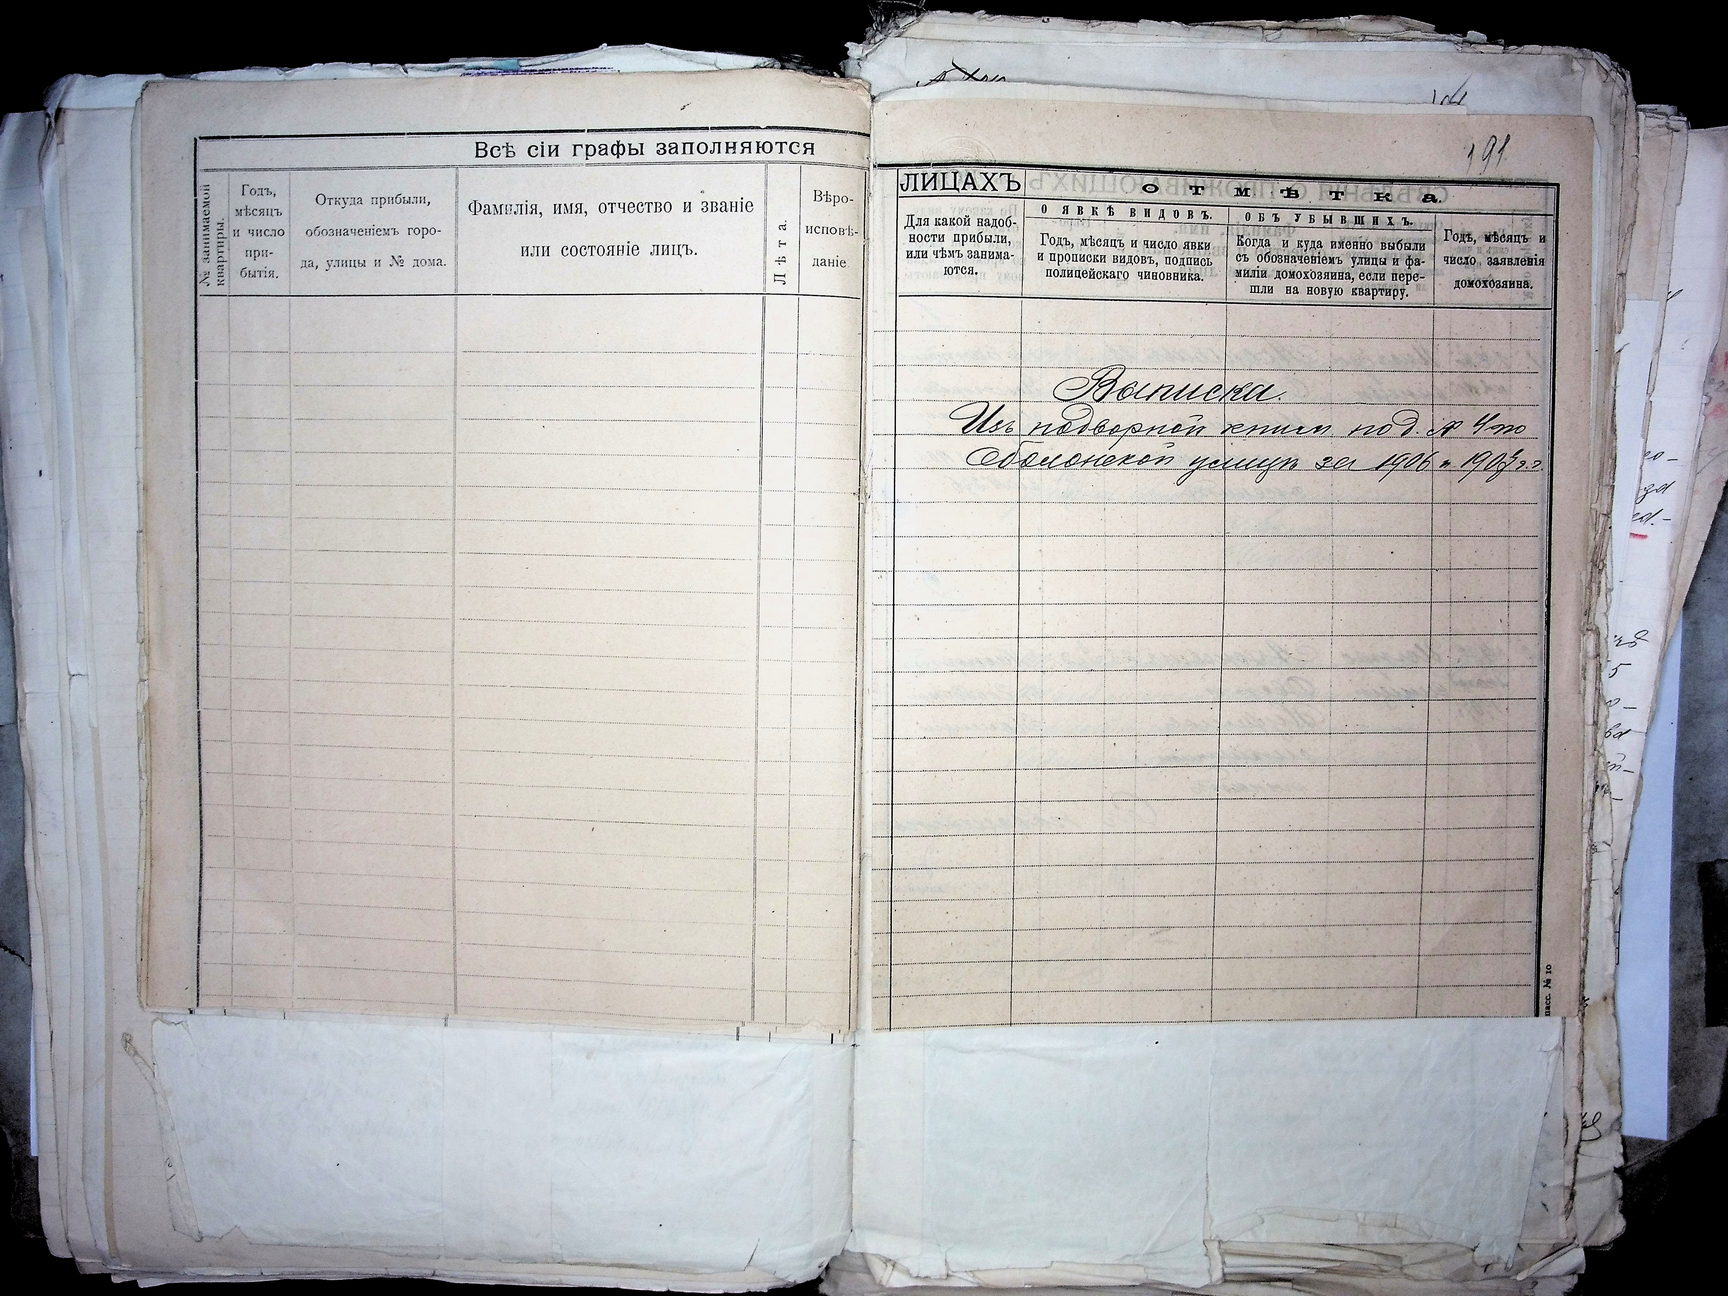 191
Всѣ сіи графы заполняются
№ занимаемой квартиры.
Годъ,
мѣсяцъ
и число
при-
бытія.
Откуда прибыли,
обозначеніемъ горо-
да, улицы и № дома.
Фамилія, имя, отчество и званіе
или состояніе лицъ.
Лѣта.
Вѣро-
исповѣ-
даніе
ЛИЦАХЪ
Для какой надоб-
ности прибыли,
или чѣмъ занима-
ются.
ОТМѢТКА
О ЯВКѢ ВИДОВЪ.
Годъ, мѣсяцъ и число явки
и прописки видовъ, подпись
полицейскаго чиновника.
ОБЪ УБЫВШИХЪ.
Когда и куда именно выбыли
съ обозначеніемъ улицы и фа-
миліи домохозяина, если пере-
шли на новую квартиру.
Годъ, мѣсяцъ и
число заявленія
домохозяина.
Выписка.
Изъ подворной книги по д. № 4 по
Оболонской улицѣ за 1906 и 1907 г.г.
№ 10